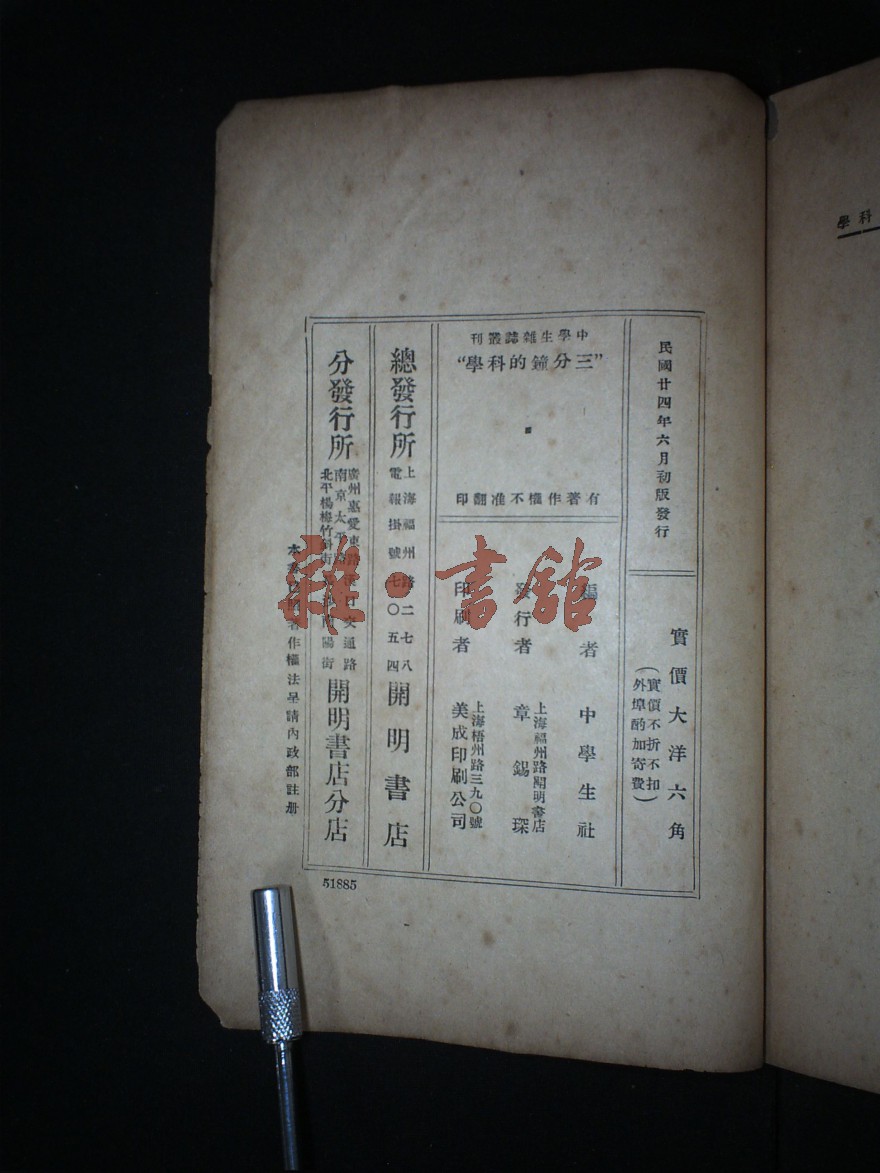 民國廿四年六月初版發行
實價大洋六角
(實價不折不扣
外埠酌加寄費)
中學生雜誌叢刊
“三分鐘的科學”
有著作權不准翻印
編者
中學生社
發行者
上海福州路開明書店
章錫琛
印刷者
上海梧州路三九〇號
美成印刷公司
總發行所
上海福州路二七八
電報掛號七〇五四
開明書店
分發行所
廣州惠愛東路 交通路
南京太平路
北平楊梅竹斜街 南陽街
開明書店分店
本書 著作權法呈請內政部註册
51885
科學
雜·書館